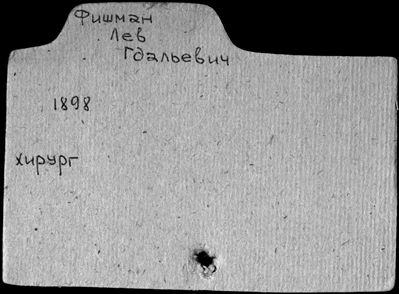 Фишман
Лев
Гдальевич
1898
хирург